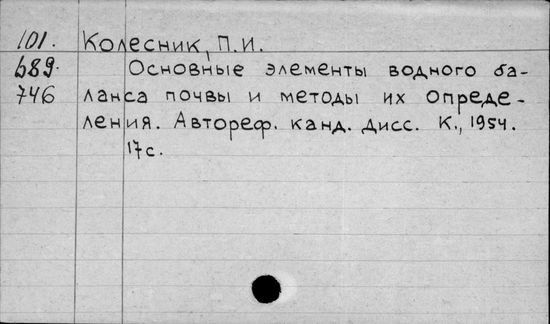 101. Колесник, П.И.
689. Основные элементы водного ба-
746 ланса почвы и методы их опреде-
ления. Автореф. канд. дисс. К., 1954.
17с.